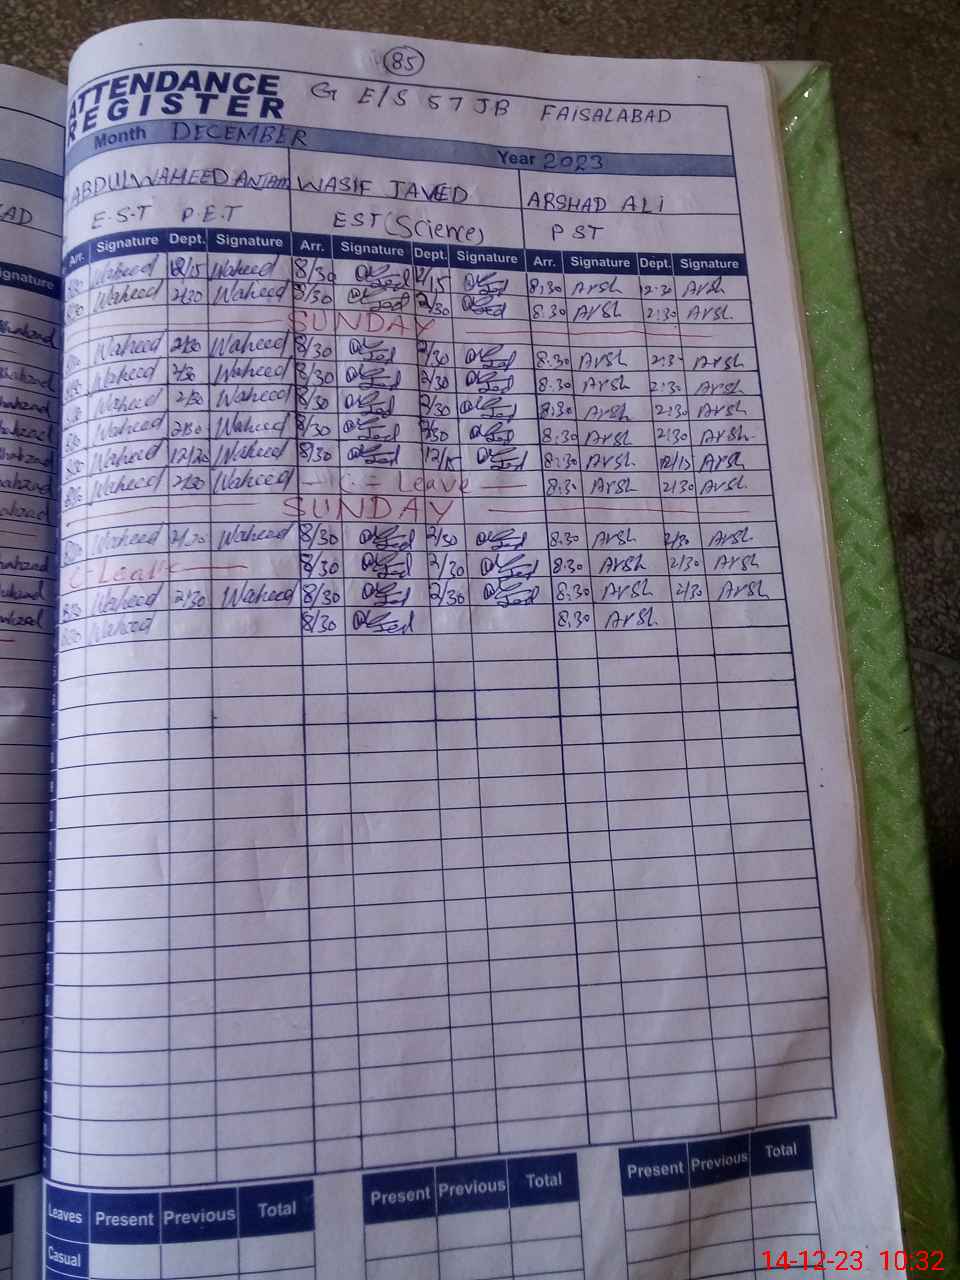 85
ATTENDANCE REGISTER G E/S 57 JB FAISALABAD
Month DECEMBER Year 2023
ABDUL WAHEED ANJAM WASIF JAVED ARSHAD ALI
E.S.T P.E.T EST (Science) PST
Arr. Signature Dept. Signature Arr. Signature Dept. Signature Arr. Signature Dept. Signature
Waheed 12/15 Waheed 8/30 12/15 8:30 Arsh 12:30 Arsh
Waheed 2/30 Waheed 8/30 2/30 8:30 Arsh 2:30 Arsh
SUNDAY
Waheed 2/30 Waheed 8/30 2/30 8:30 Arsh 2:3 Arsh
Waheed 2/30 Waheed 8/30 2/30 8:30 Arsh 2:30 Arsh
Waheed 2/30 Waheed 8/30 2/30 8:30 Arsh 2:30 Arsh
Waheed 2/30 Waheed 8/30 2/30 8:30 Arsh 2:30 Arsh
Waheed 12/30 Waheed 8/30 12/15 8:30 Arsh 12/15 Arsh
Waheed 2/30 Waheed C - Leave 8:30 Arsh 2:30 Arsh
SUNDAY
Waheed 2/30 Waheed 8/30 2/30 8:30 Arsh 2/30 Arsh
C-Leave 8/30 2/30 8:30 Arsh 2/30 Arsh
8/30 Waheed 2/30 Waheed 8/30 2/30 8:30 Arsh 2/30 Arsh
8/30 Waheed 8/30 8:30 Arsh
Leaves Present Previous Total Present Previous Total Present Previous Total
Casual
14-12-23 10:32